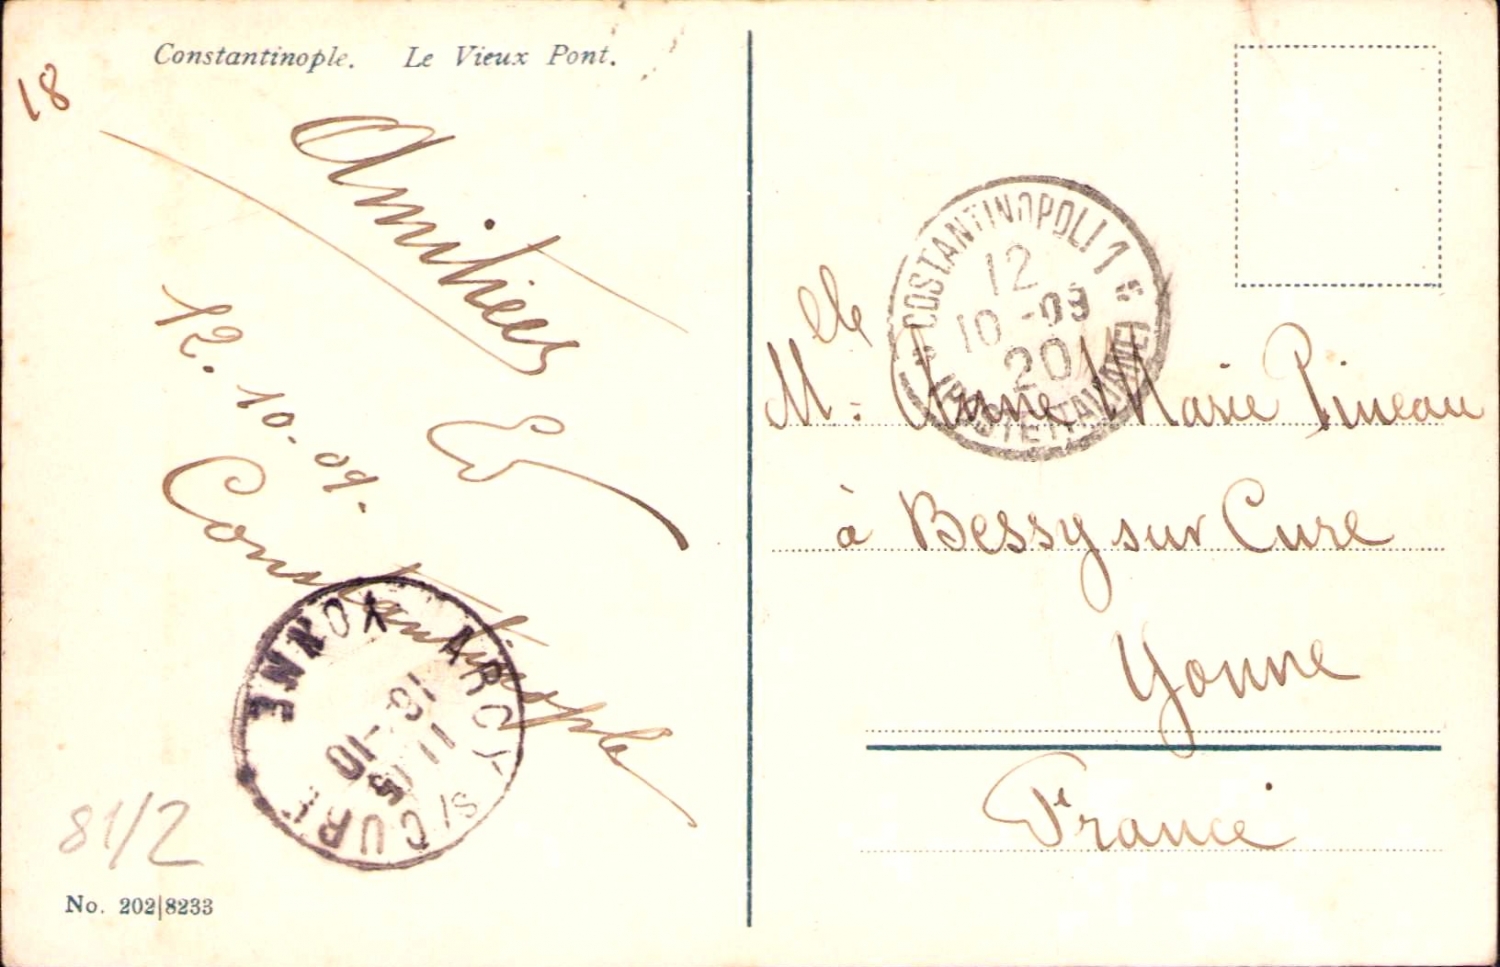 Constantinople. Le Vieux Pont.
18
Amitiées
12. 10. 09.
Constantinople
81/2
No. 202|8233
COSTANTINOPOLI 1
12
10 -09
20
(POSTE ITALIANE)
Mlle Anne Marie Pineau
à Bessy sur Cure
Yonne
France
ARCY S/ CURE
YONNE